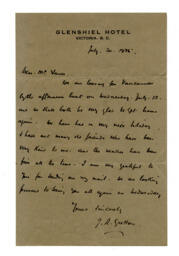 GLENSHIEL HOTEL
VICTORIA, B. C.
July. 20. 1935.
Dear Mr.
We are leaving for Vancouver
by the afternoon boat on Wednesday. July. 22.
and we shall both be very glad to get home
again. We have had a very nice holiday
I have met many old friends who have been
very kind to me. And the weather has been
fine all the time. I am very grateful to
you for sending on my mail. We are looking
forward to seeing you all again on Wednesday
Yours Sincerely